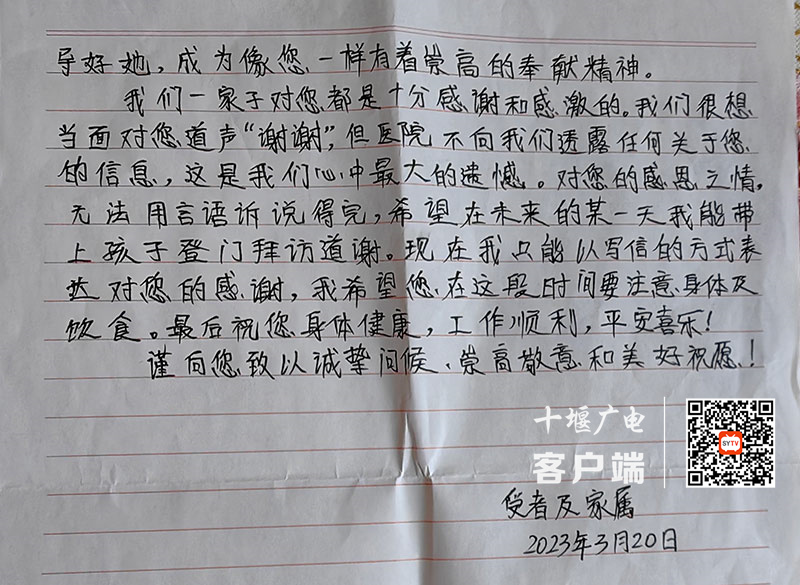 导好她，成为像您一样有着崇高的奉献精神。
我们一家子对您都是十分感谢和感激的。我们很想
当面对您道声“谢谢”，但医院不向我们透露任何关于您
的信息，这是我们心中最大的遗憾。对您的感恩之情，
无法用言语诉说得完，希望在未来的某一天我能带
上孩子登门拜访道谢。现在我只能以写信的方式表
达对您的感谢，我希望您在这段时间要注意身体及
饮食。最后祝您身体健康，工作顺利，平安喜乐！
谨向您致以诚挚问候、崇高敬意和美好祝愿！
十堰广电
客户端
SYTV
受者及家属
2023年3月20日